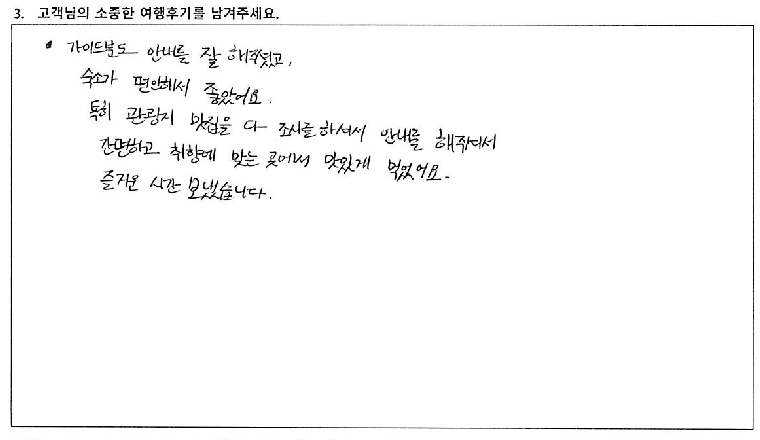 3. 고객님의 소중한 여행후기를 남겨주세요.
• 가이드분도 안내를 잘 해주셨고,
숙소가 편안해서 좋았어요.
특히 관광지 맛집을 다 조사를하셔서 안내를 해주셔서
간편하고 취향에 맞는 곳에서 맛있게 먹었어요.
즐거운 시간 보냈습니다.